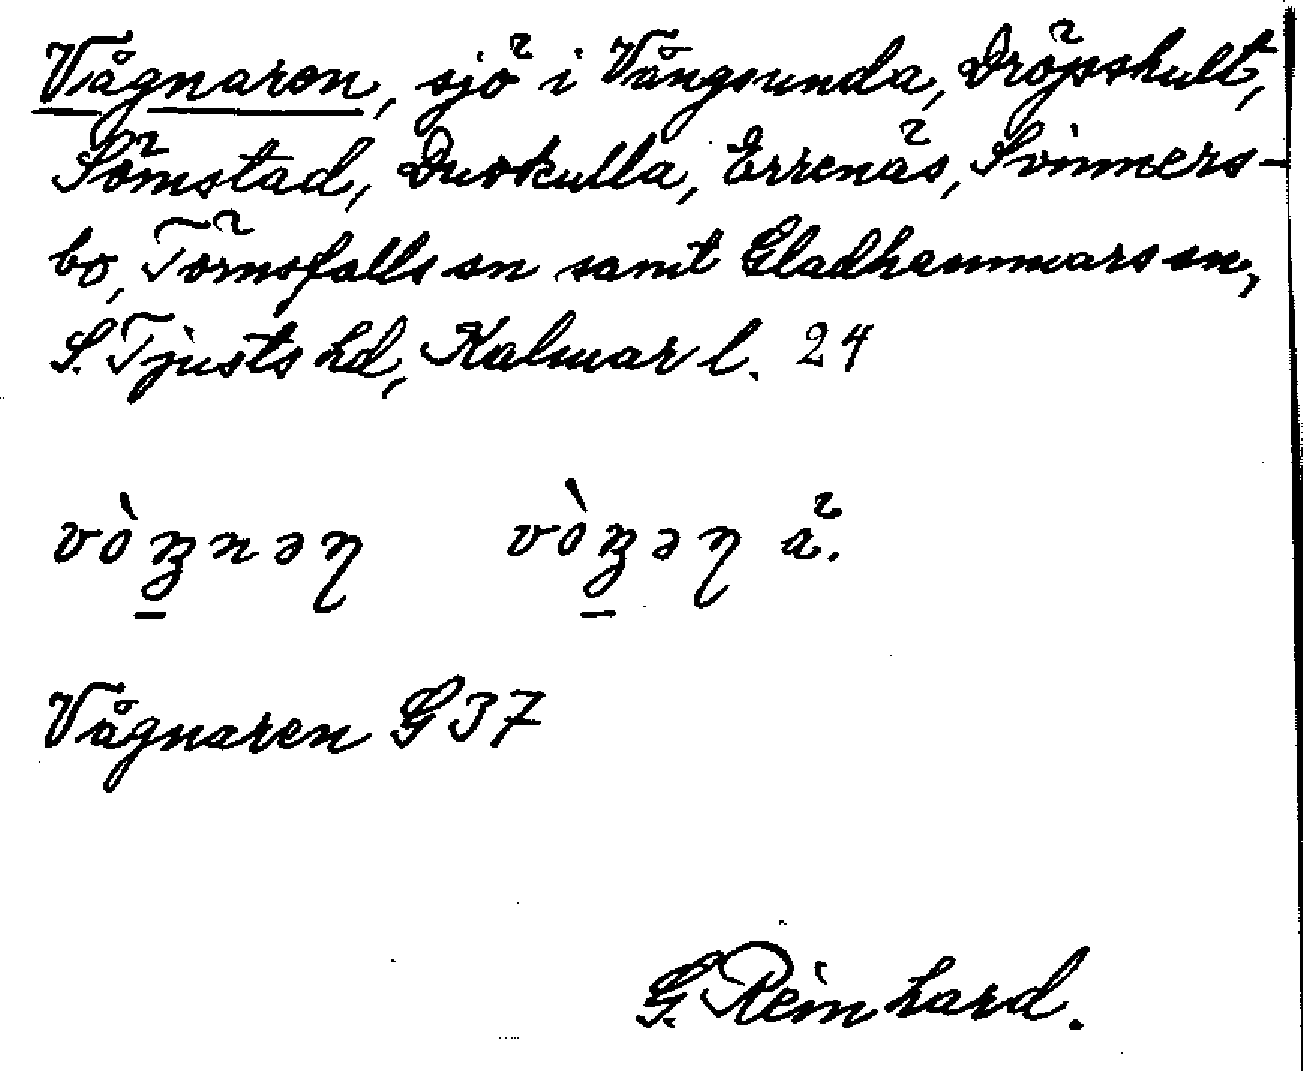 Vågnaren, sjö i Vångsunda, Dröpshult,
Sömstad, Duvkulla, Errenäs, Svinners-
bo, Törnsfalls sn samt Gladhammars sn,
S. Tjusts hd, Kalmar l. 24
Vågnaren G 37
G. Reinhard.